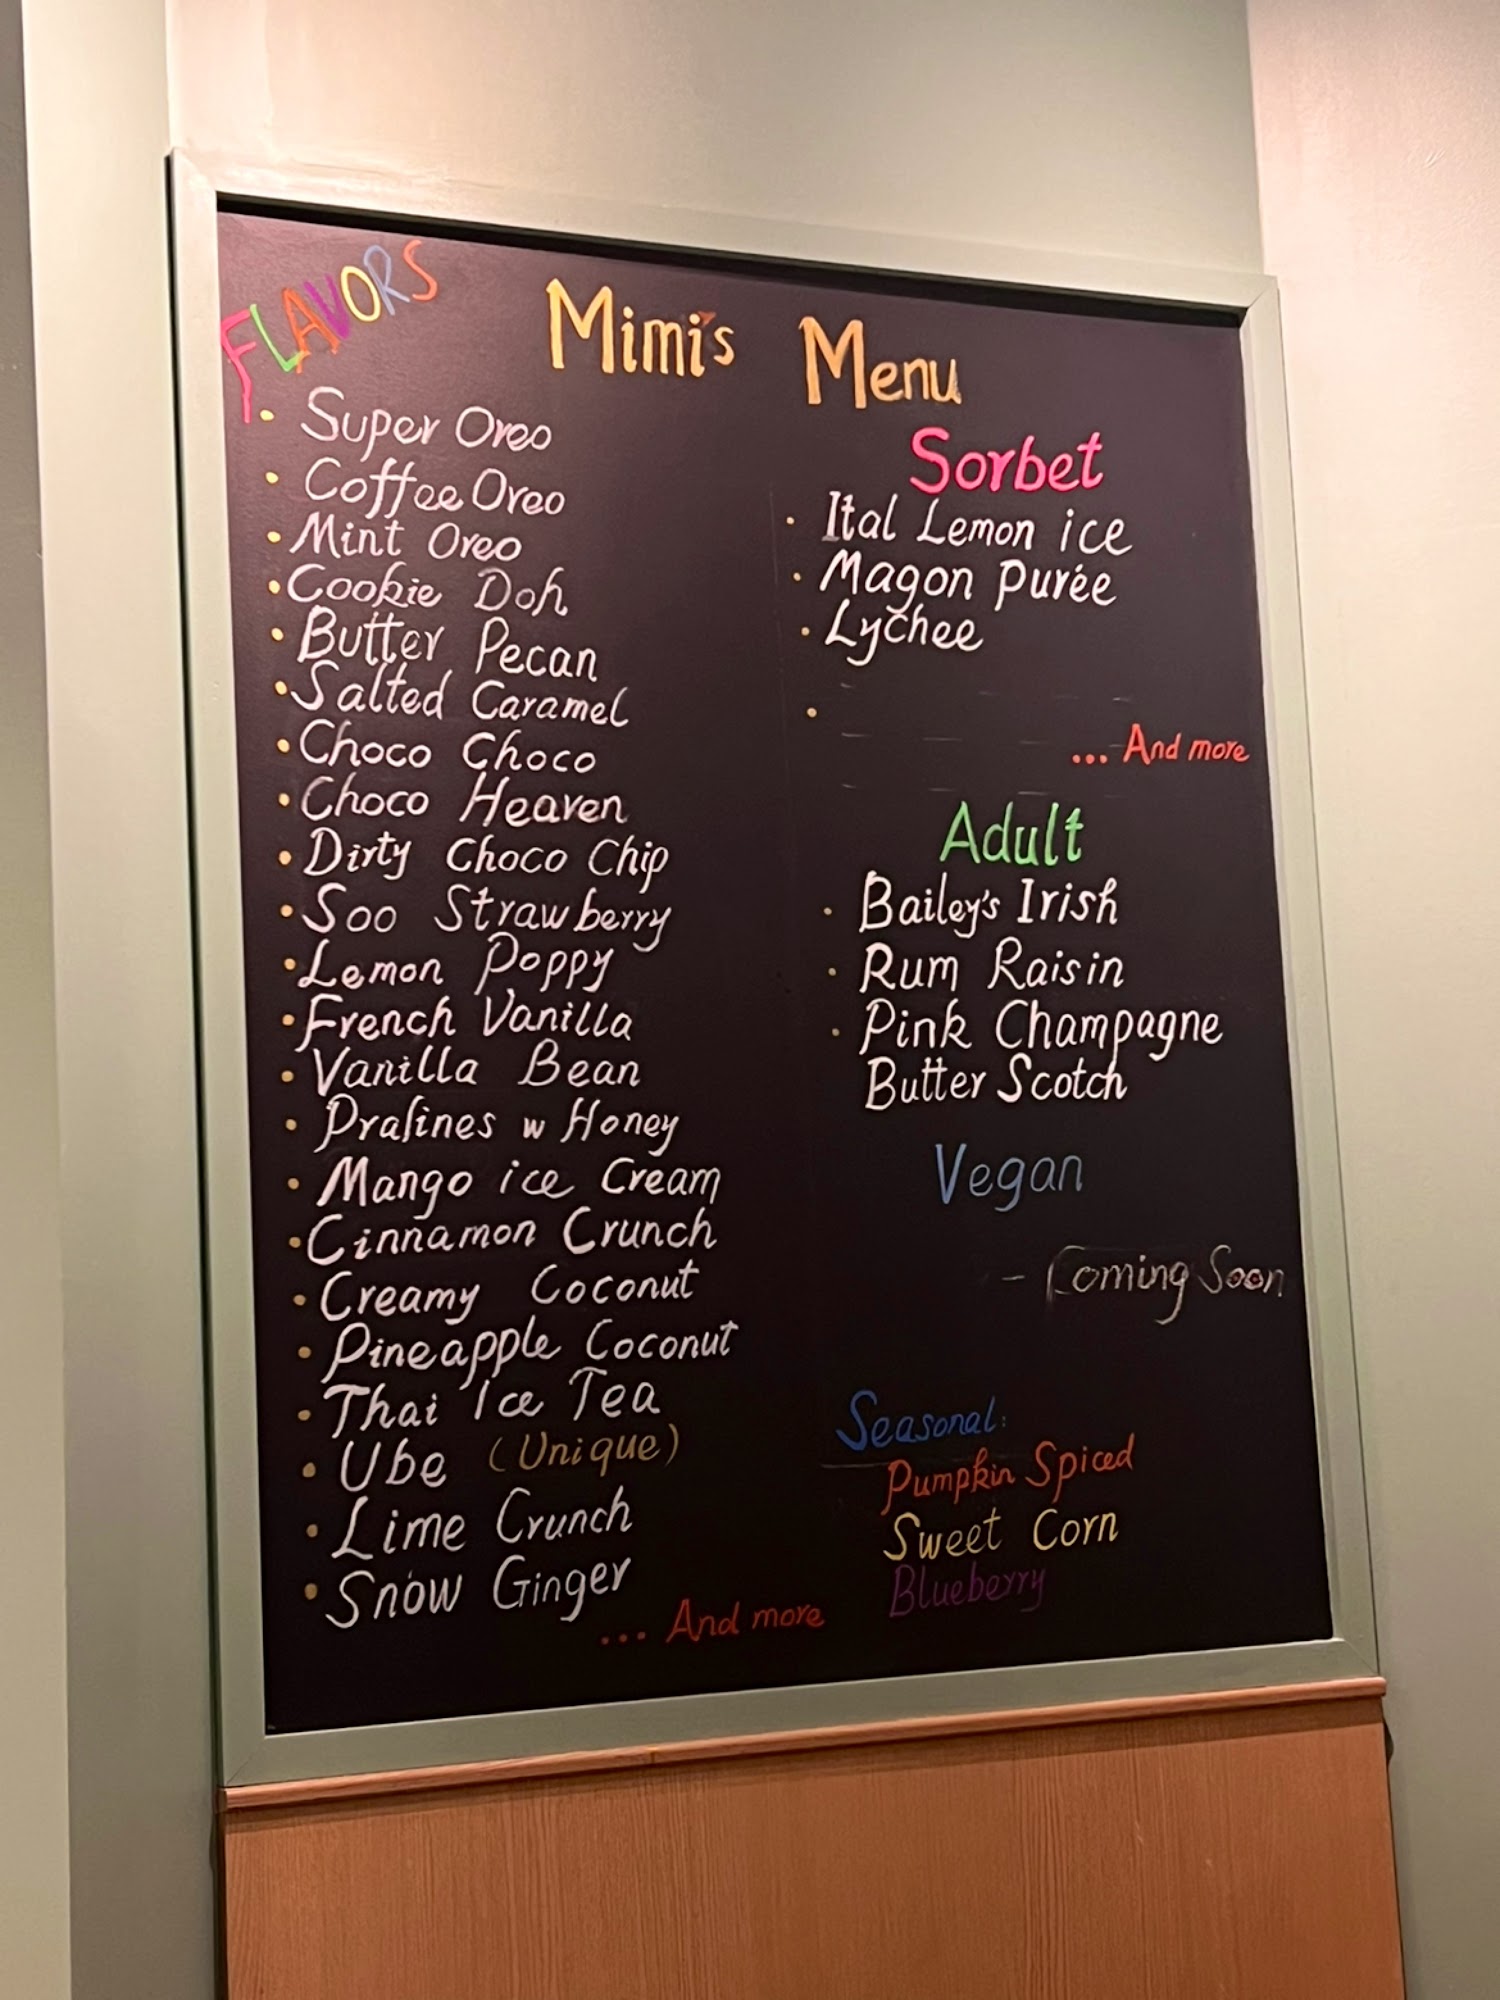 FLAVORS
Mimi's Menu
Super Oreo
Coffee Oreo
Mint Oreo
Cookie Doh
Butter Pecan
Salted Caramel
Choco Choco
Choco Heaven
Dirty Choco Chip
Soo Strawberry
Lemon Poppy
French Vanilla
Vanilla Bean
Pralines w Honey
Mango ice Cream
Cinnamon Crunch
Creamy Coconut
Pineapple Coconut
Thai Ice Tea
Ube (Unique)
Lime Crunch
Snow Ginger
... And more
Sorbet
Ital Lemon ice
Magon Purée
Lychee
... And more
Adult
Bailey's Irish
Rum Raisin
Pink Champagne
Butter Scotch
Vegan
- Coming Soon
Seasonal:
Pumpkin Spiced
Sweet Corn
Blueberry